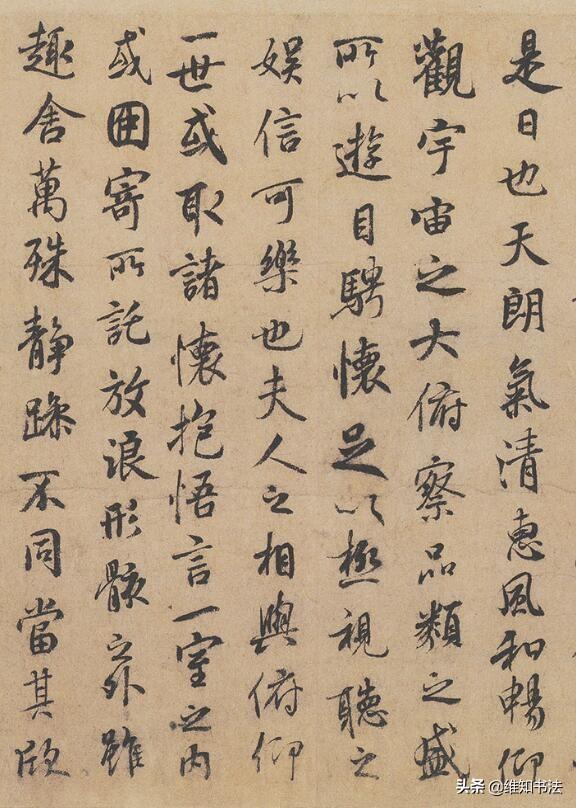 是日也天朗氣清惠風和暢仰
觀宇宙之大俯察品類之盛
所以遊目騁懷足以極視聽之
娛信可樂也夫人之相與俯仰
一世或取諸懷抱悟言一室之內
或因寄所託放浪形骸之外雖
趣舍萬殊靜躁不同當其欣
头条 @维知书法